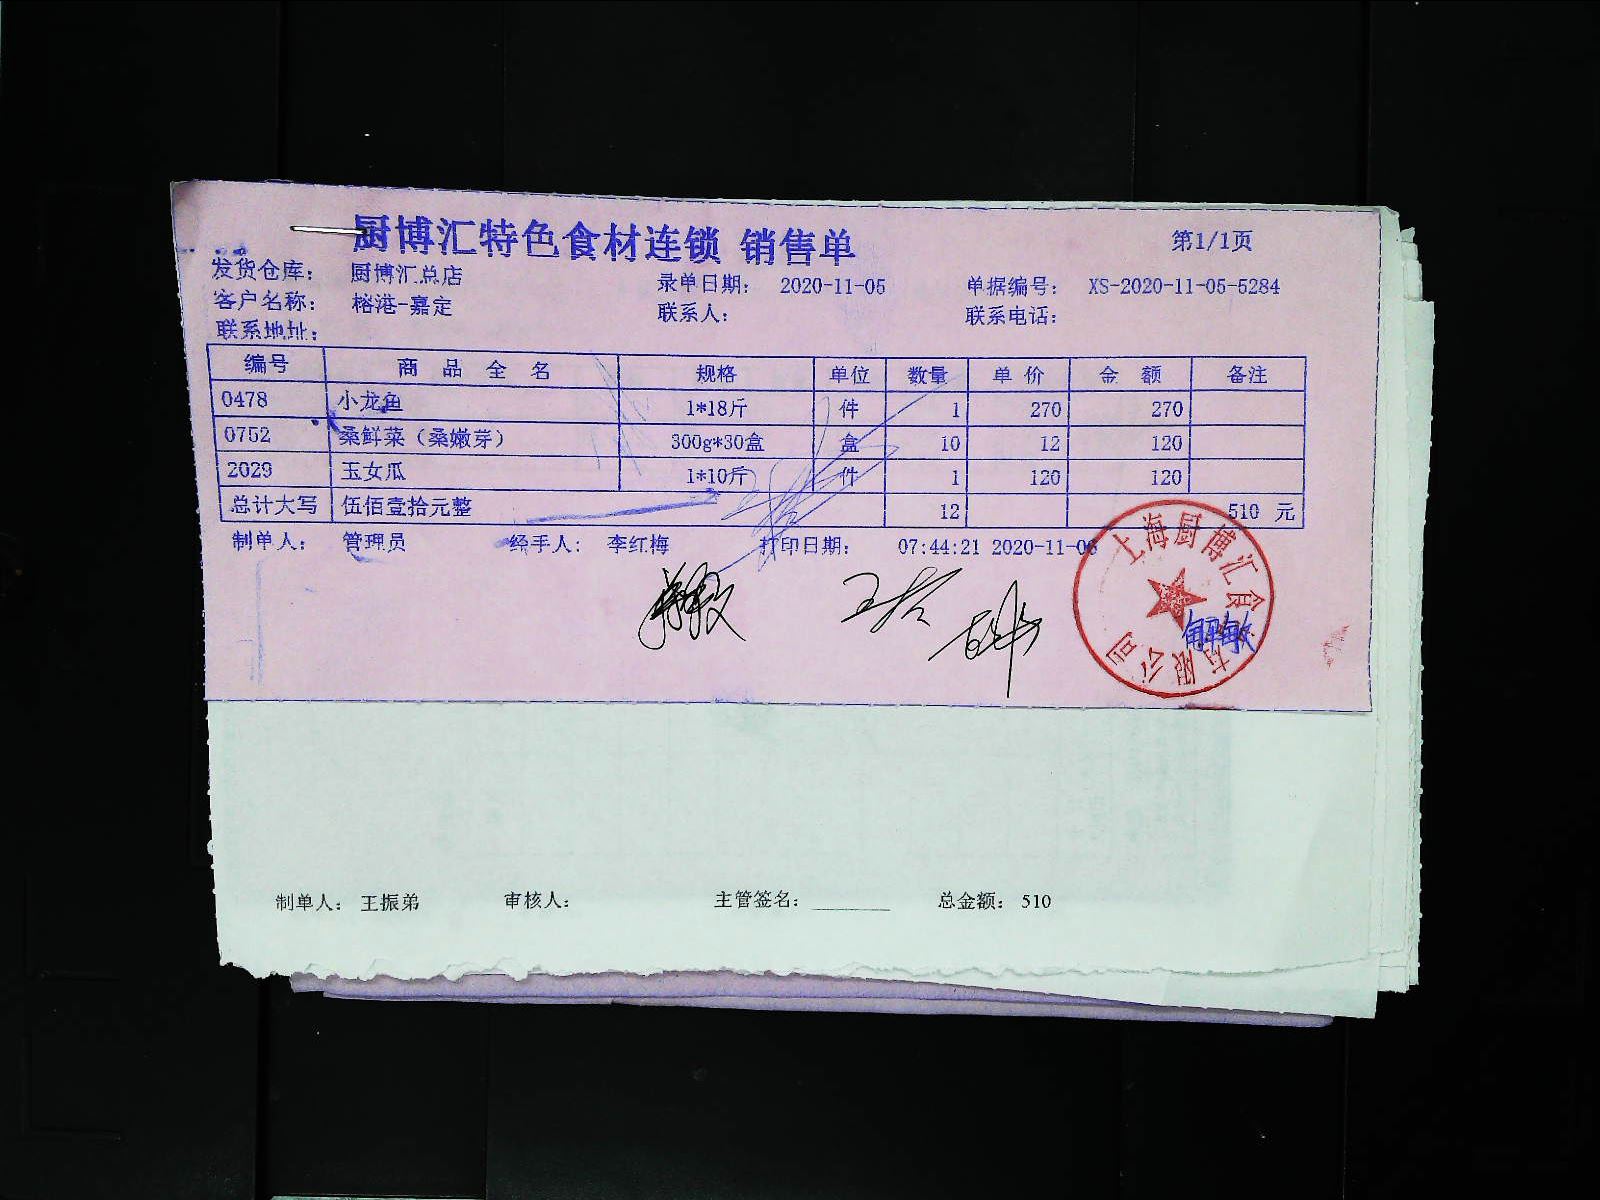 厨博汇特色食材连锁 销售单 第1/1页
发货仓库： 厨博汇总店 录单日期： 2020-11-05 单据编号： XS-2020-11-05-5284
客户名称： 榕港-嘉定 联系人： 联系电话：
联系地址：
编号 商品全名 规格 单位 数量 单价 金额 备注
0478 小龙鱼 1*18斤 件 1 270 270
0752 桑鲜菜（桑嫩芽） 300g*30盒 盒 10 12 120
2029 玉女瓜 1*10斤 件 1 120 120
总计大写 伍佰壹拾元整 12 510 元
制单人： 管理员 经手人： 李红梅 打印日期： 07:44:21 2020-11-06
上海厨博汇食 有限公司
解敏
制单人： 王振弟 审核人： 主管签名： 总金额： 510